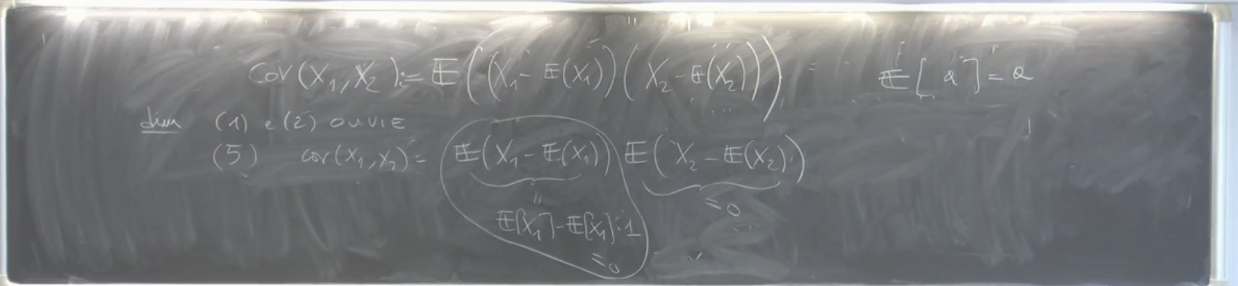 Cov(X₁,X₂) := 𝔼((X₁ - 𝔼(X₁))(X₂ - 𝔼(X₂))) = 𝔼[a] = a
dim (1) e (2) OVVIE
(5) cov(X₁,X₂) = 𝔼(X₁ - 𝔼(X₁)) 𝔼(X₂ - 𝔼(X₂))
= = 0
𝔼[X₁] - 𝔼[X₁]·1
= 0